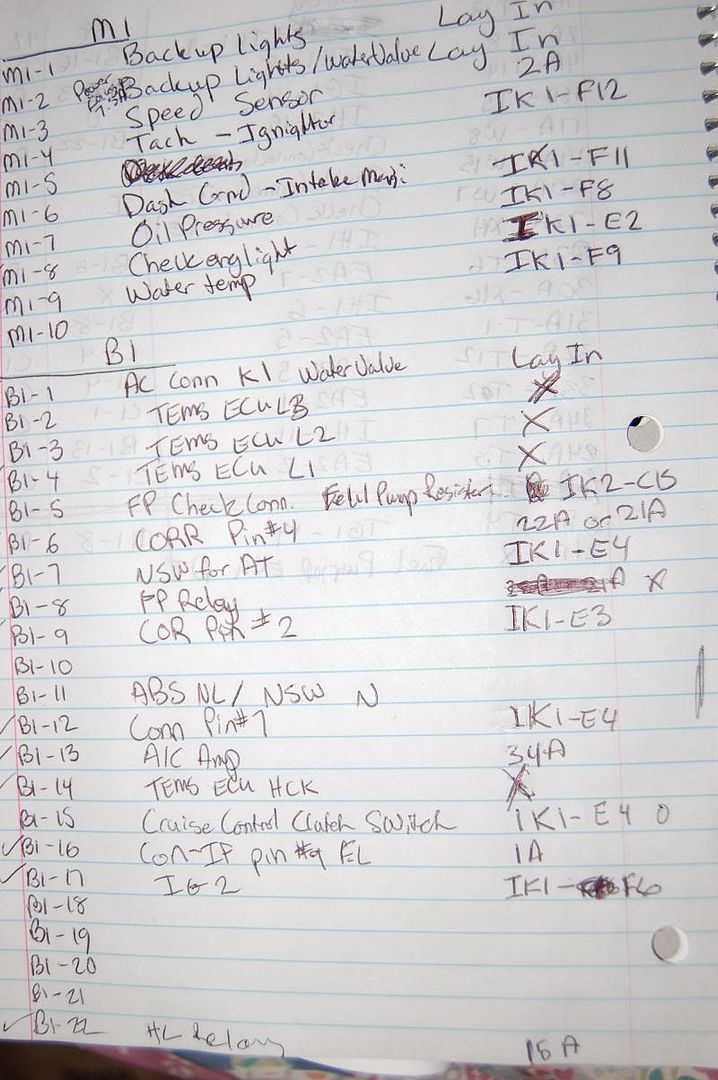 M1
M1-1 Backup Lights Lay In
M1-2 Backup Lights/waterValve Lay In
M1-3 Speed Sensor 2A
M1-4 Tach - Ignightor IK1-F12
M1-5
M1-6 Dash Grnd - Intake Mani: IK1-F11
M1-7 Oil Pressure IK1-F8
M1-8 Check eng light IK1-E2
M1-9 Water temp IK1-F9
M1-10
B1
B1-1 AC Conn K1 WaterValve Lay In
B1-2 TEMS ECU L3 X
B1-3 TEMS ECU L2 X
B1-4 TEMS ECU L1 X
B1-5 FP Check Conn. Fuel Pump Resistant IK2-C15
B1-6 CORR Pin#4 22A or 21A
B1-7 NSW for AT IK1-E4
B1-8 FP Relay X
B1-9 COR Pin #2 IK1-E3
B1-10
B1-11 ABS NL/ NSW N
B1-12 Conn Pin#7 IK1-E4
B1-13 A/C Amp 34A
B1-14 TEMS ECU HCK X
B1-15 Cruise Control Clutch Switch IK1-E4 0
B1-16 Con-IP pin #9 EL 1A
B1-17 IG2 IK1-F6
B1-18
B1-19
B1-20
B1-21
B1-22 HL Relay 18A